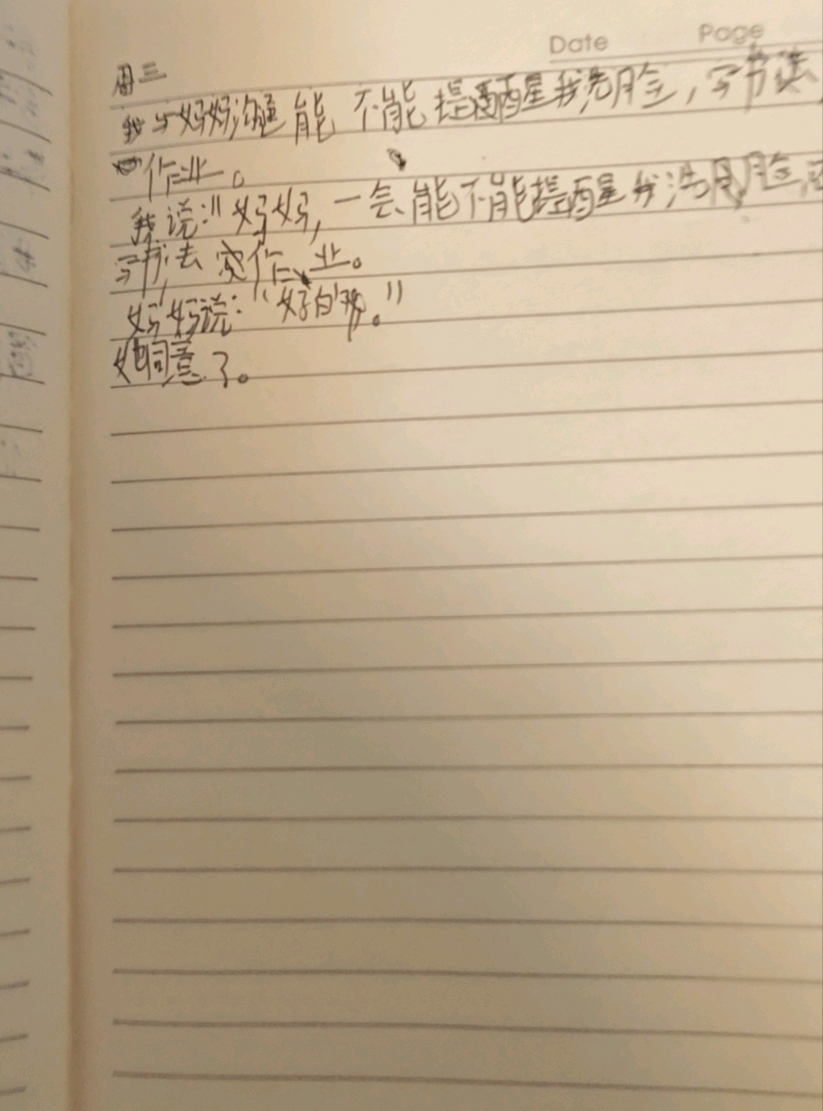 Date Page
周三
我与妈妈沟通能不能提醒我洗脸,写书法,
作业。
我说:"妈妈,一会能不能提醒我洗脸,
写书法 作业。
妈妈说:"好的。"
她同意了。